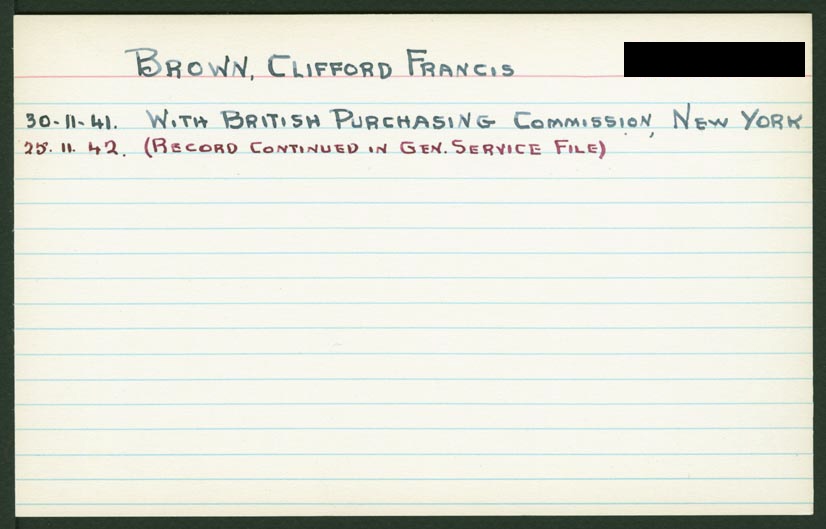 BROWN, CLIFFORD FRANCIS
30-11-41. WITH BRITISH PURCHASING COMMISSION, NEW YORK
25. 11. 42. (RECORD CONTINUED IN GEN. SERVICE FILE)